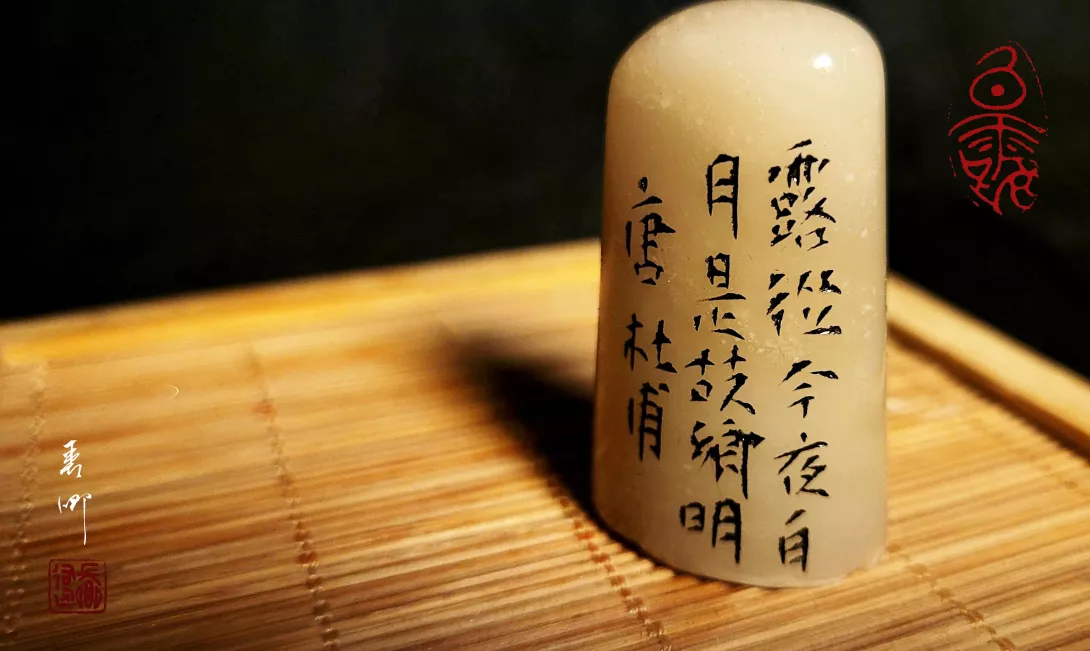 露從今夜白
月是故鄉明
唐 杜甫